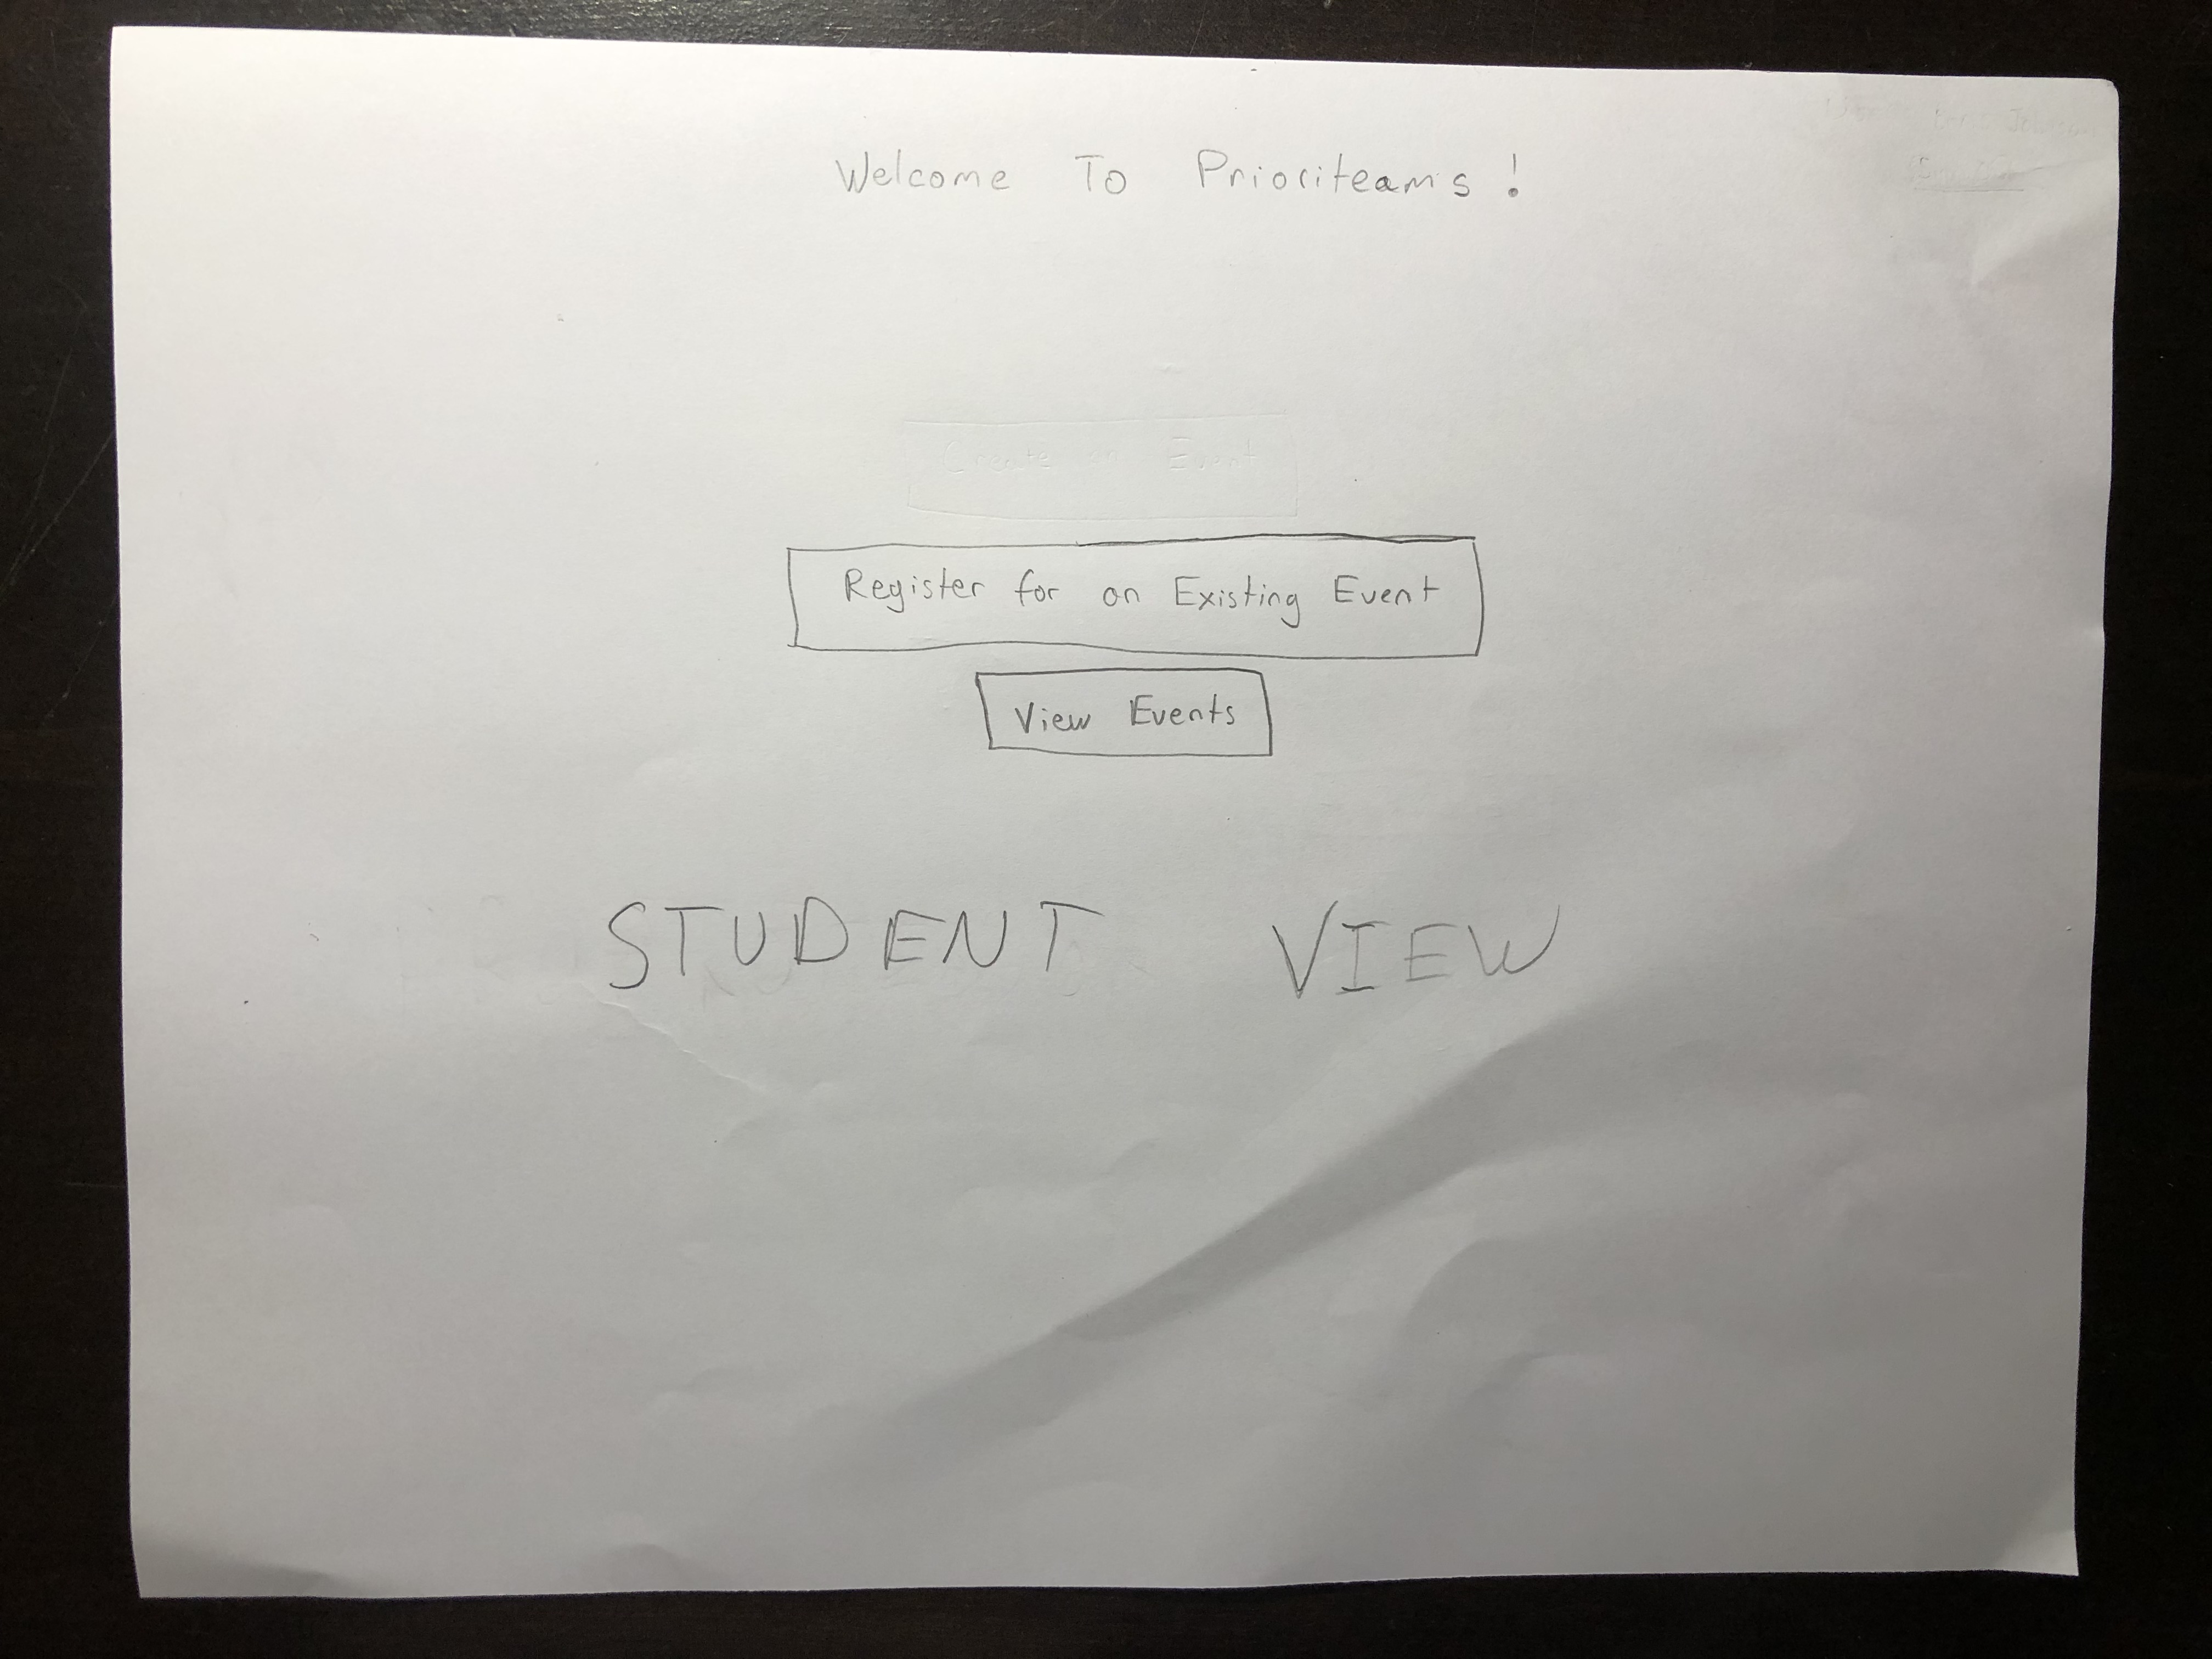 Welcome To Prioriteams!
Create an Event
Register for an Existing Event
View Events
STUDENT VIEW